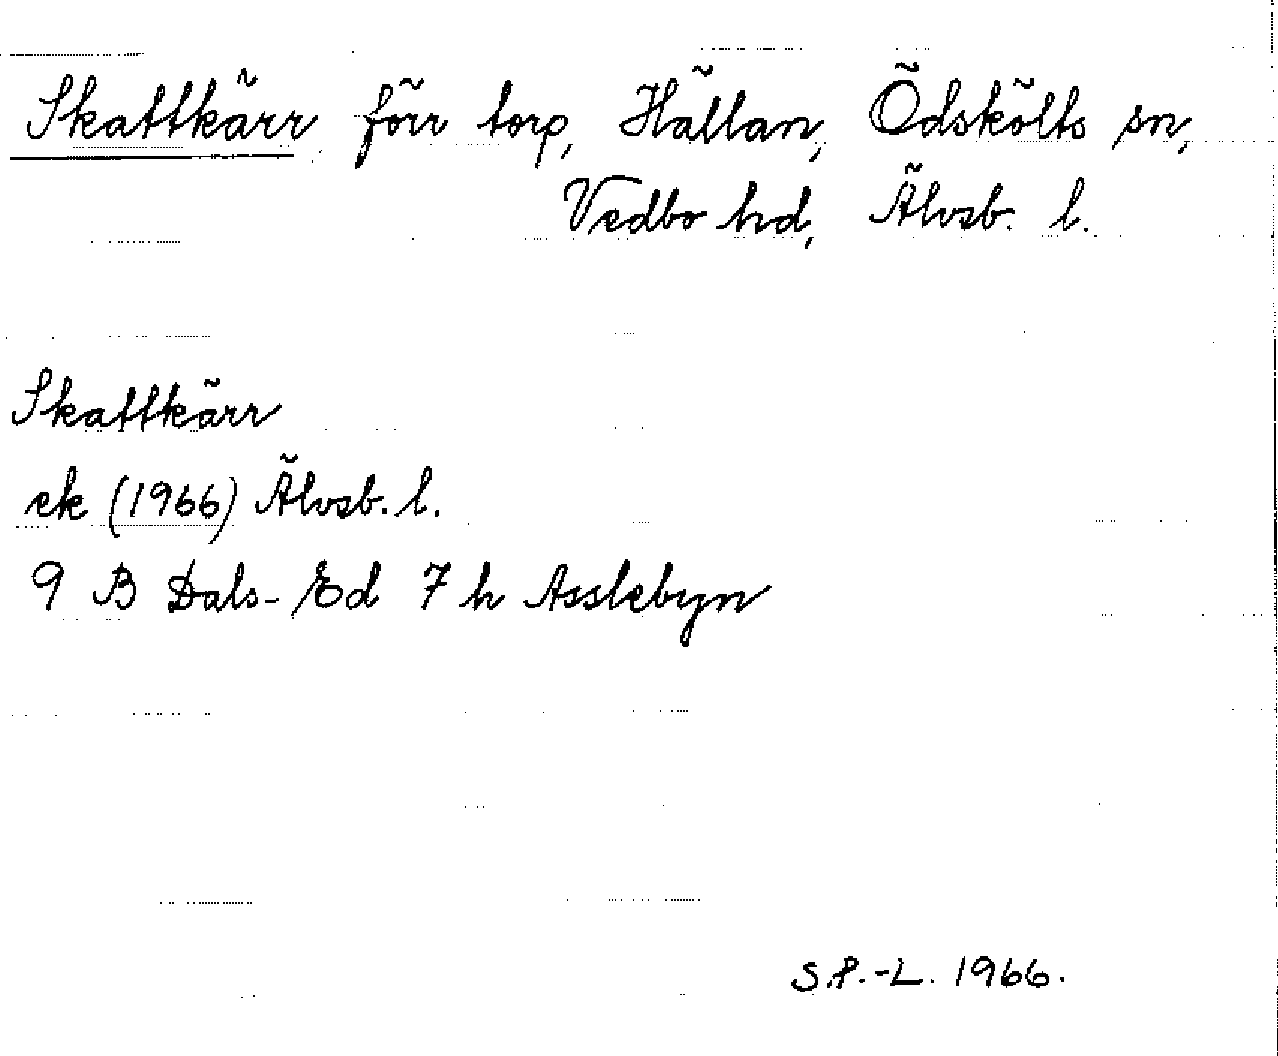 Skattkärr förr torp, Hällan, Ödskölts sn,
Vedbo hd, Älvsb. l.
Skattkärr
ek (1966) Älvsb. l.
9 B Dals-Ed 7 h Asslebyn
S.P.-L. 1966.